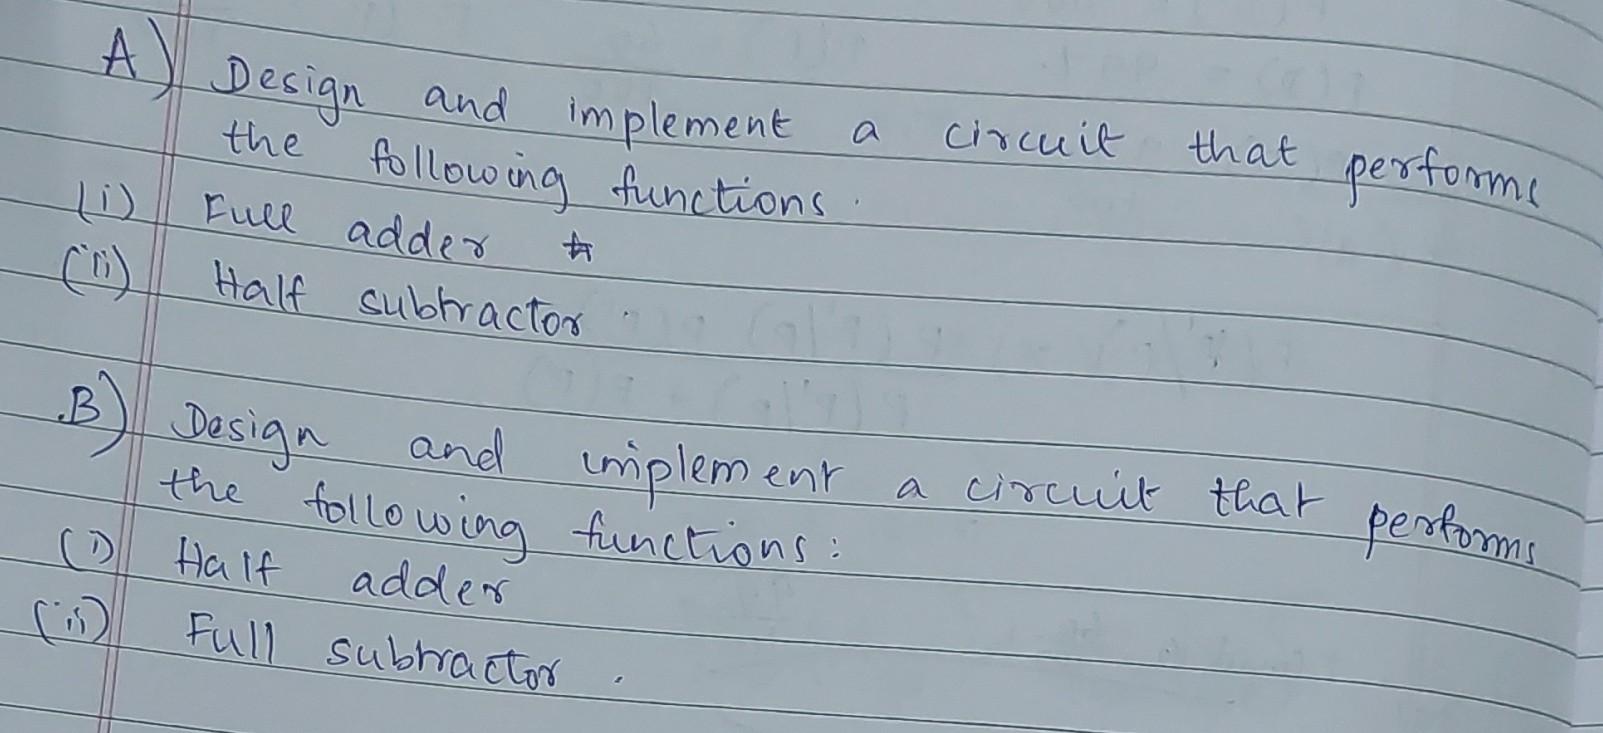 A) Design and implement a circuit that performs
the following functions.
(i) Full adder
(ii) Half subtractor
B) Design and implement a circuit that performs
the following functions:
(i) Half adder
(ii) Full subtractor.